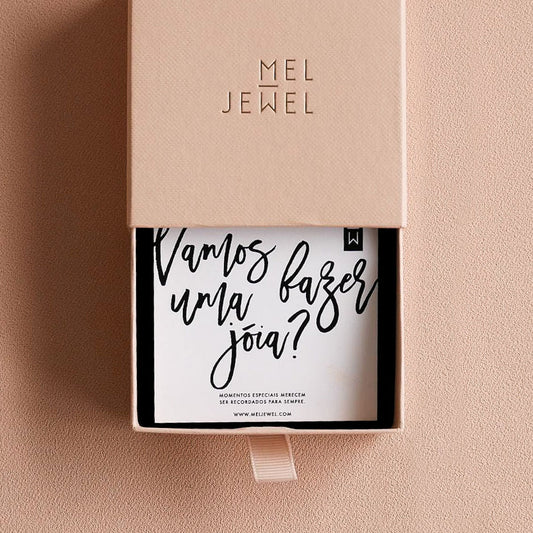 MEL
JEWEL
Vamos
uma fazer
jóia?
MOMENTOS ESPECIAIS MERECEM
SER RECORDADOS PARA SEMPRE.
WWW.MELJEWEL.COM